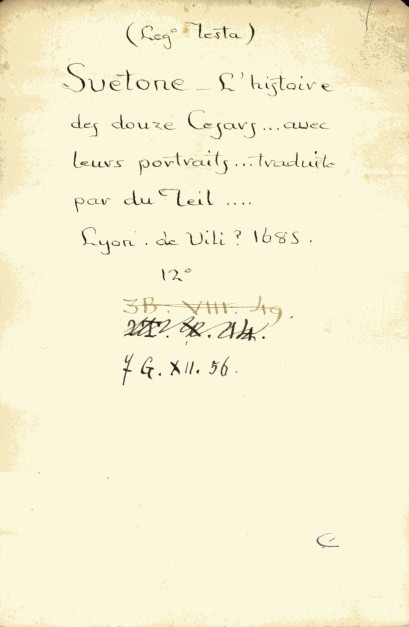 (Leg° Testa)
Suetone – L'histoire
des douze Cesars... avec
leurs portraits... traduite
par du Teil ....
Lyon. de Vili? 1685.
12°
3B. VIII. 49.
7 G. XII. 56.
C